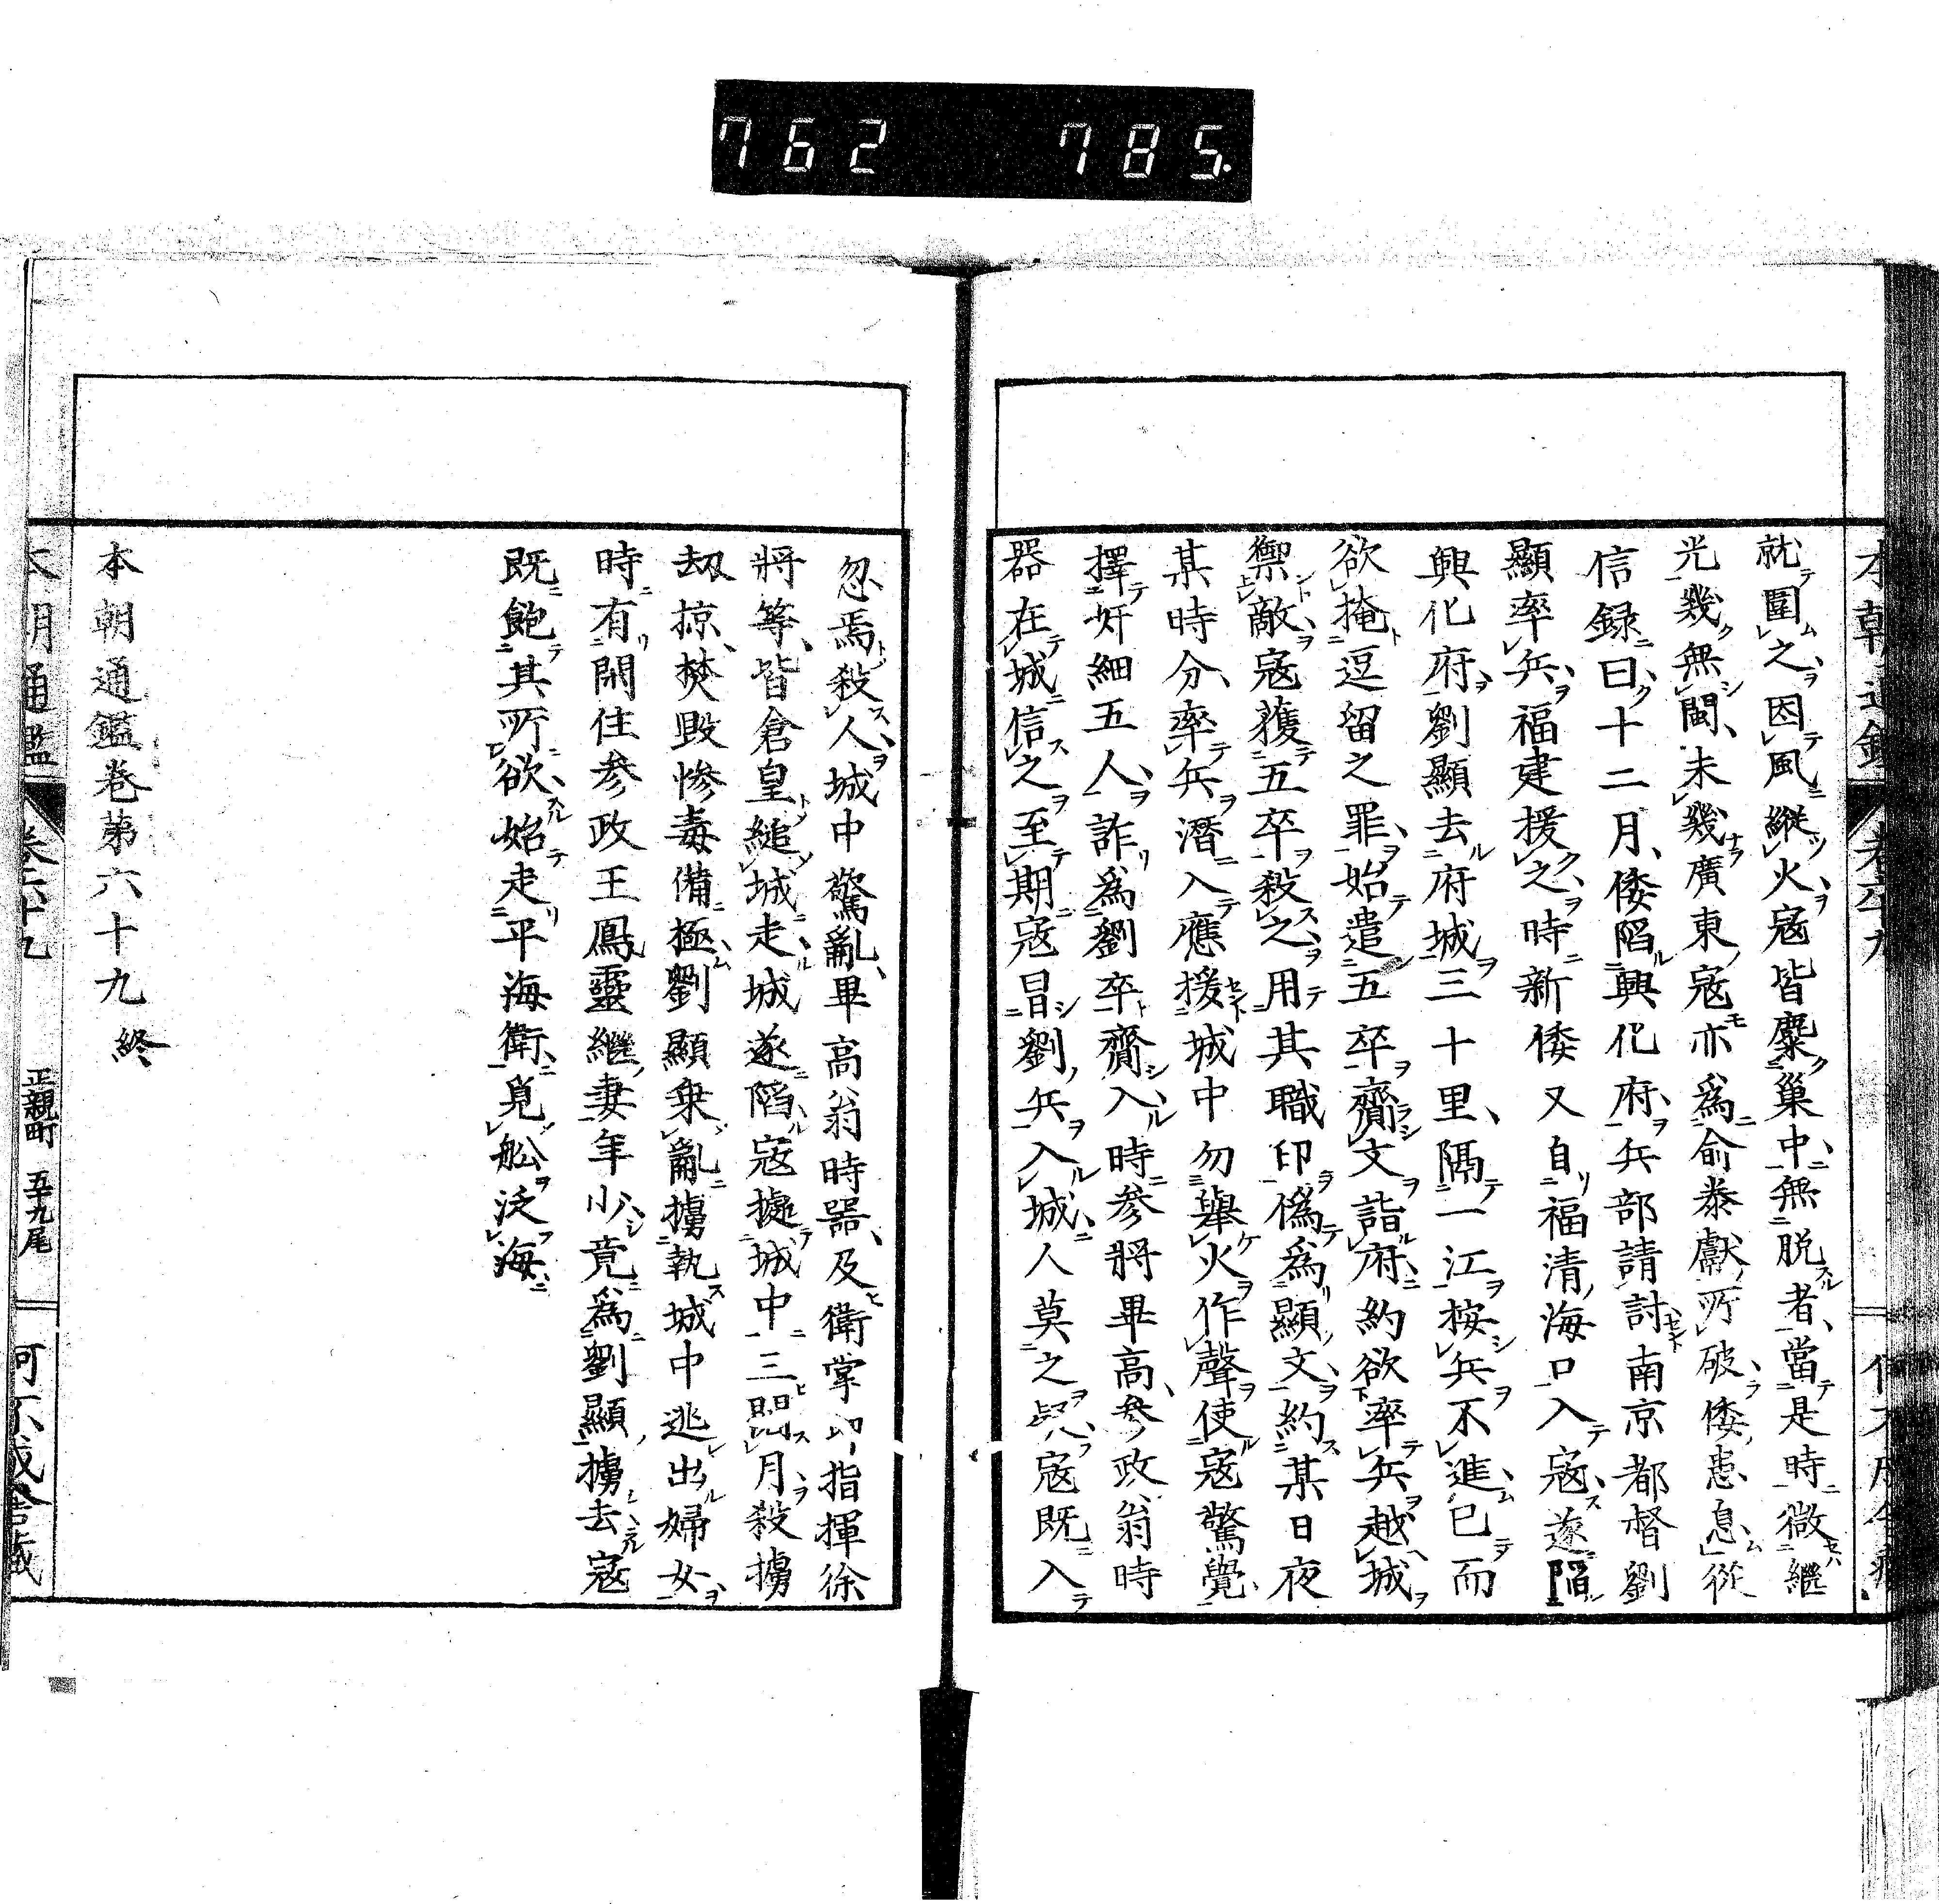 762 785
本朝通鑑 卷六十九
就圍之因風縱火寇皆麋巢中無脱者當是時微繼
光幾無閩未幾廣東寇亦爲俞泰獻所破倭患息從
信録曰十二月倭陷興化府兵部請討南京都督劉
顯率兵福建援之時新倭又自福清海口入寇遂陷
興化府劉顯去府城三十里隔一江按兵不進已而
欲掩逗留之罪始遣五卒齎文詣府約欲率兵越城
禦敵寇獲五卒殺之用其職印僞爲顯文約某日夜
某時分率兵潛入應援城中勿舉火作聲使寇驚覺
擇奸細五人詐爲劉卒齎入時參將畢高參政翁時
器在城信之至期寇冒劉兵入城人莫之疑寇既入
忽焉殺人城中驚亂畢高翁時器及衛掌印指揮徐
將等皆倉皇縋城走城遂陷寇據城中三閲月殺擄
刼掠焚毀慘毒備極劉顯乗亂擄執城中逃出婦女
時有閑住参政王鳳靈繼妻年小竟爲劉顯擄去寇
既飽其所欲始走平海衛覓舩泛海
本朝通鑑卷第六十九 終
本朝通鑑 卷六十九 正親町 五十九尾